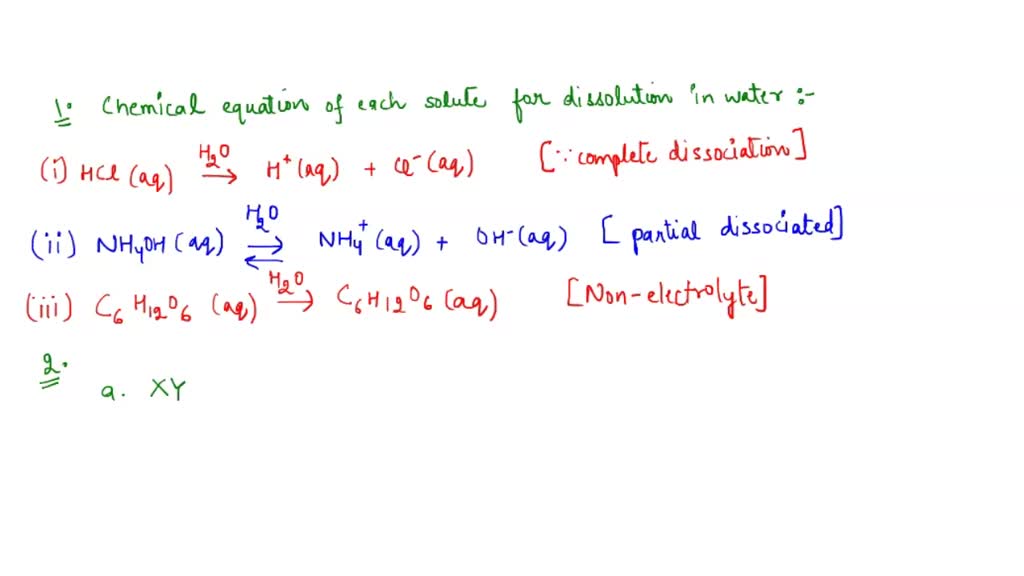 1. Chemical equation of each solute for dissolution in water :-
(i) HCl (aq) H₂O → H⁺ (aq) + Cl⁻ (aq) [∵ complete dissociation]
(ii) NH4OH (aq) H₂O ⇌ NH₄⁺ (aq) + OH⁻ (aq) [partial dissociated]
(iii) C₆H₁₂O₆ (aq) H₂O → C₆H₁₂O₆ (aq) [Non-electrolyte]
2.
a. XY